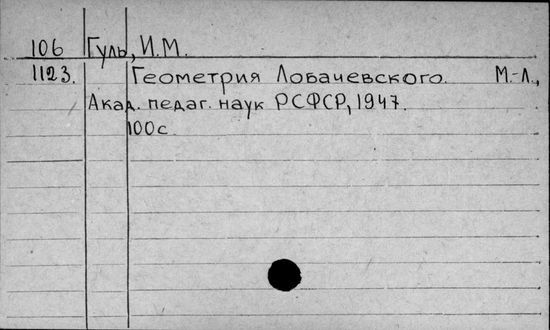 106 Гуль, И.М.
1123. Геометрия Лобачевского. М.-Л.,
Акад. педаг. наук РСФСР, 1947.
100с.